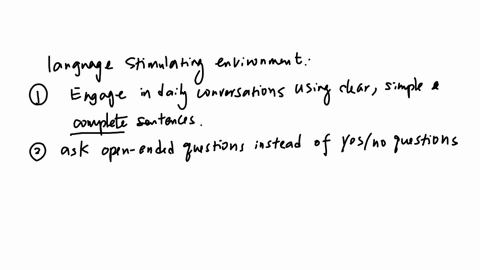 language stimulating environment:
① Engage in daily conversations using clear, simple &
complete sentences.
② ask open-ended questions instead of yes/no questions